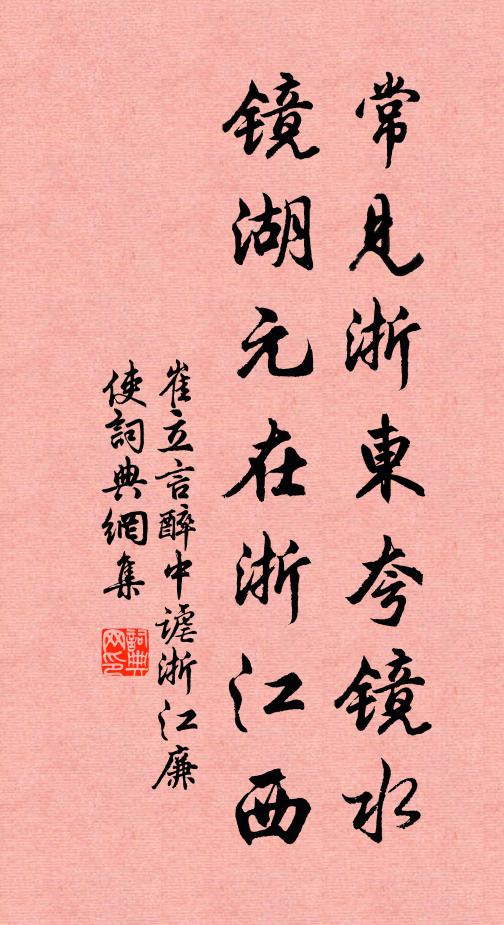 常見浙東夸镜水
镜湖元在浙江西
崔立言醉中謔浙江廉
使詞典網集
詞典
网印